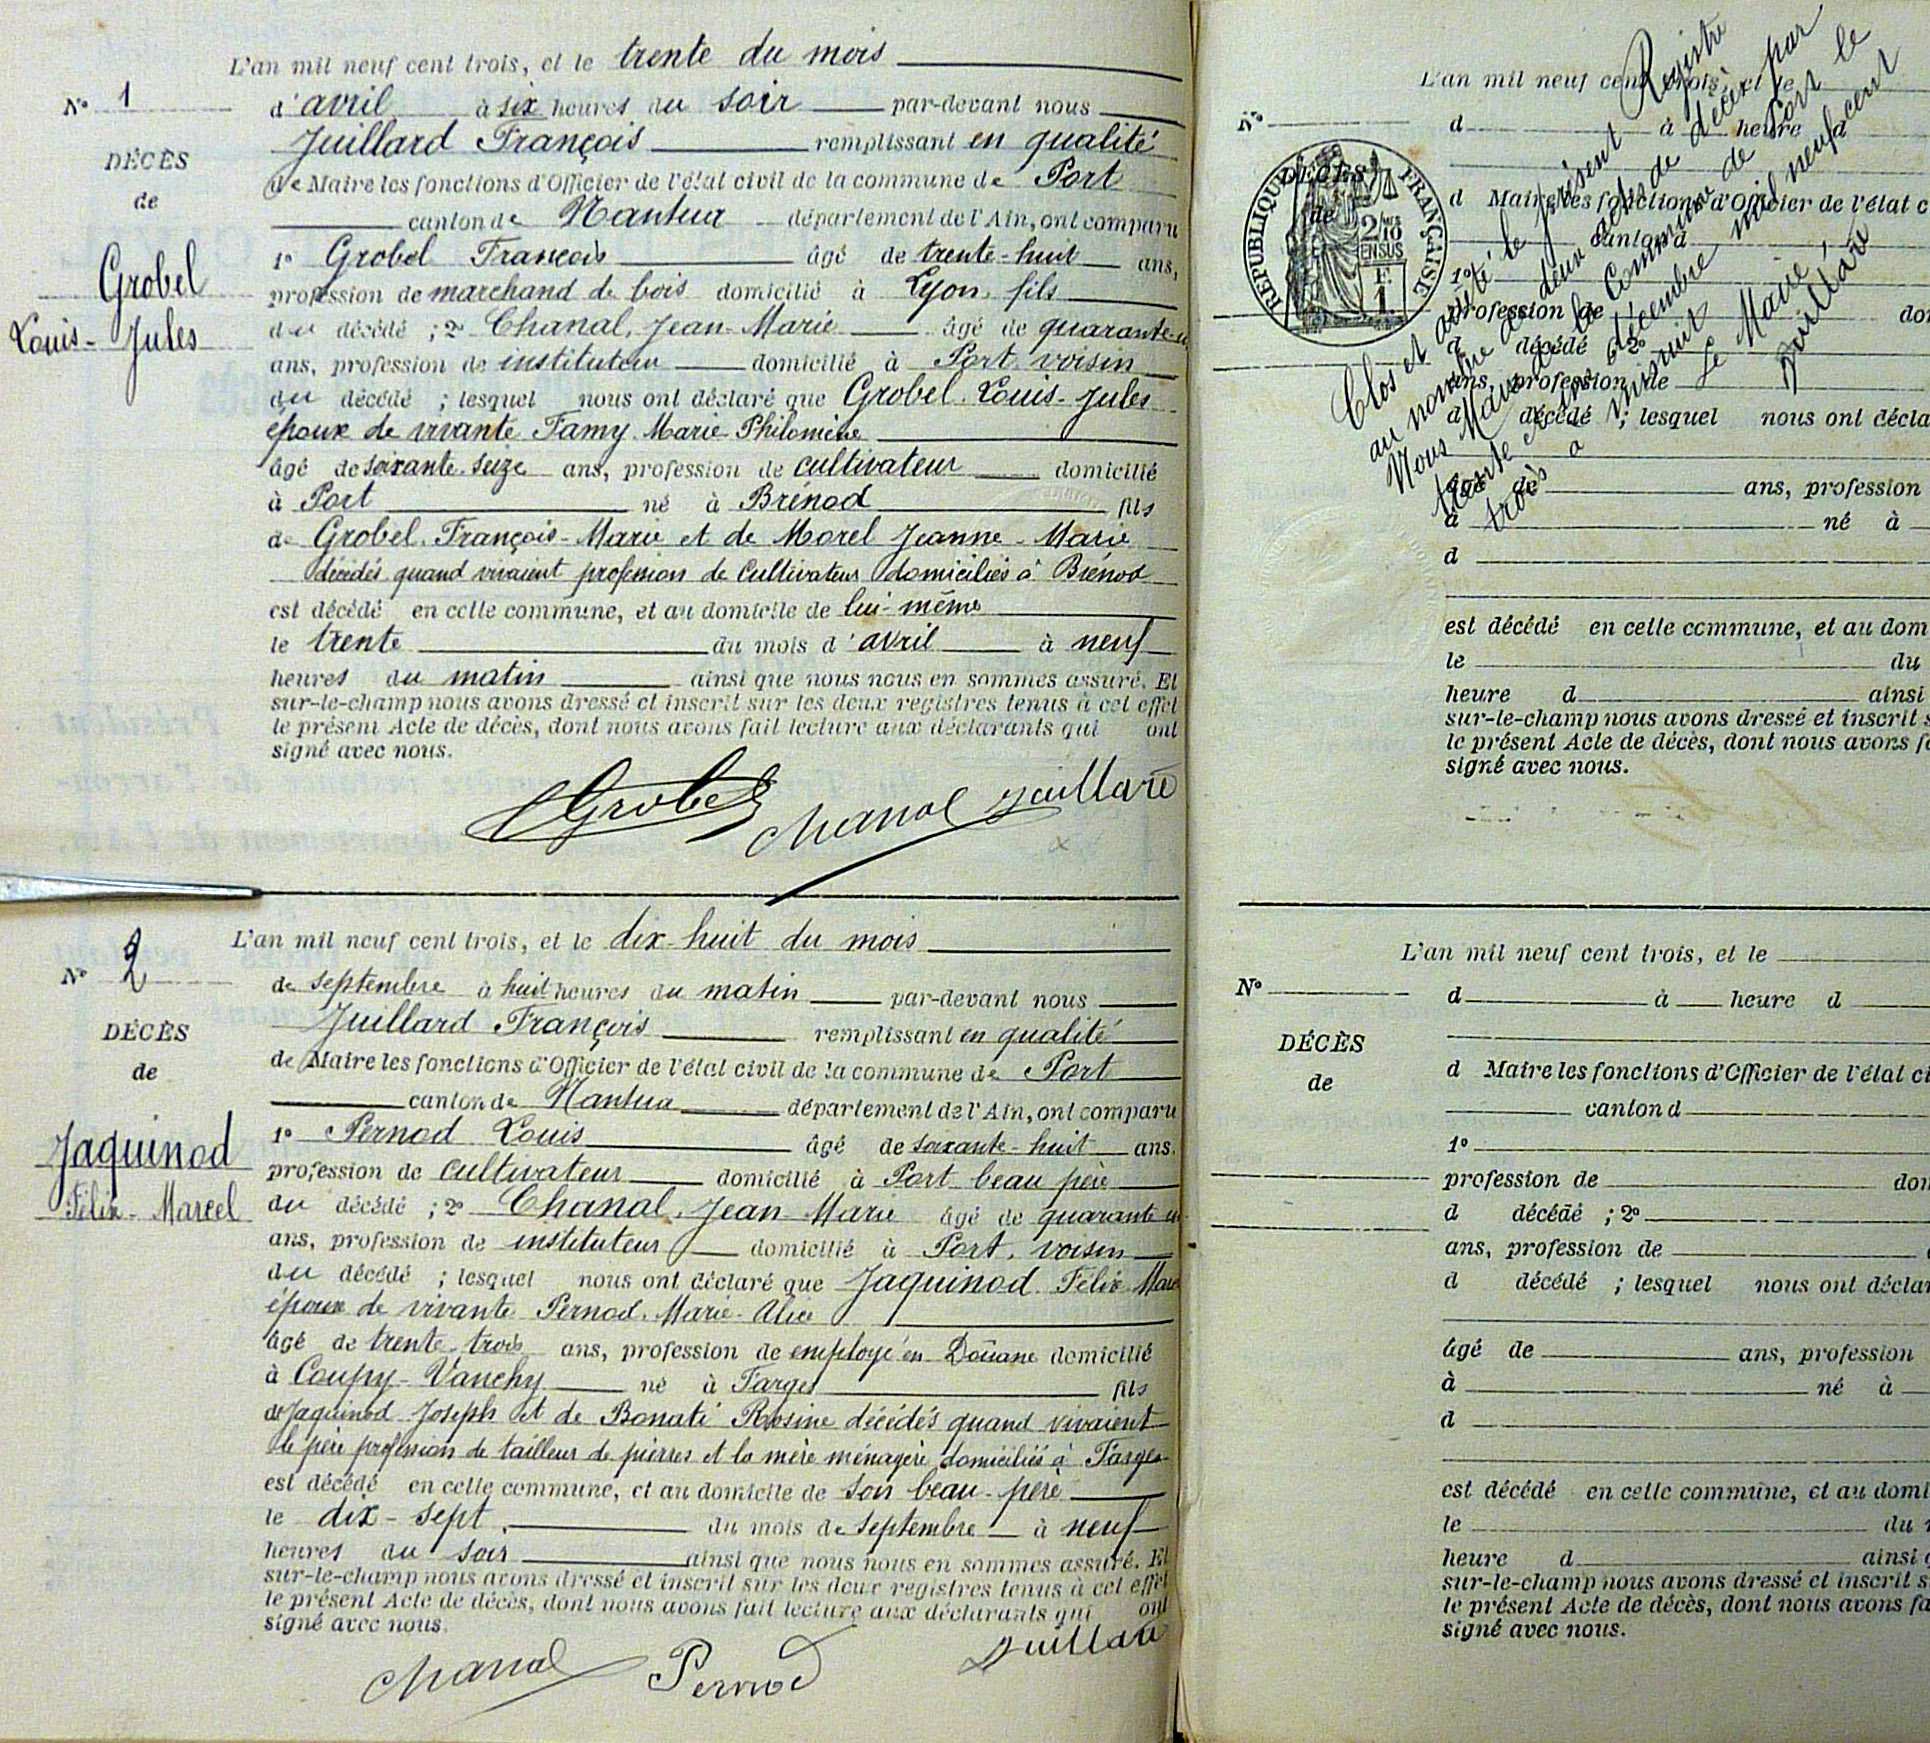 L'an mil neuf cent trois, et le trente du mois
N° 1
d'avril à six heures du soir par-devant nous
DÉCÈS
Juillard François remplissant en qualité
de Maire les fonctions d'Officier de l'état civil de la commune de Port
de
canton de Nantua département de l'Ain, ont comparu
Grobel
Louis-Jules
1° Grobel François âgé de trente-huit ans,
profession de marchand de bois domicilié à Lyon, fils
du décédé ; 2° Chanal, Jean-Marie âgé de quarante-
ans, profession de instituteur domicilié à Port, voisin
du décédé ; lesquel nous ont déclaré que Grobel Louis-Jules
époux de vivante Famy Marie Philomène
âgé de soixante-seize ans, profession de cultivateur domicilié
à Port né à Brénod fils
de Grobel François-Marie et de Morel Jeanne-Marie
décédés quand vivaient profession de cultivateurs domiciliés à Brénod
est décédé en cette commune, et au domicile de lui-même
le trente du mois d'avril à neuf
heures du matin ainsi que nous nous en sommes assuré. Et
sur-le-champ nous avons dressé et inscrit sur les deux registres tenus à cet effet
le présent Acte de décès, dont nous avons fait lecture aux déclarants qui ont
signé avec nous.
Grobel Chanal Juillard
L'an mil neuf cent trois, et le dix-huit du mois
N° 2
de septembre à huit heures du matin par-devant nous
DÉCÈS
Juillard François remplissant en qualité
de Maire les fonctions d'Officier de l'état civil de la commune de Port
de
canton de Nantua département de l'Ain, ont comparu
Jaquinod
Félix-Marcel
1° Pernod Louis âgé de soixante-huit ans,
profession de cultivateur domicilié à Port beau père
du décédé ; 2° Chanal, Jean Marie âgé de quarante
ans, profession de instituteur domicilié à Port, voisin
du décédé ; lesquel nous ont déclaré que Jaquinod Félix-
époux de vivante Pernod, Marie-Alice
âgé de trente-trois ans, profession de employé en Douane domicilié
à Coupy-Vanchy né à Farges fils
de Jaquinod Joseph et de Bonati Rosine décédés quand vivaient
le père profession de tailleur de pierres et la mère ménagère domiciliés à Farges
est décédé en cette commune, et au domicile de son beau-père
le dix-sept du mois de septembre à neuf
heures du soir ainsi que nous nous en sommes assuré. Et
sur-le-champ nous avons dressé et inscrit sur les deux registres tenus à cet effet
le présent Acte de décès, dont nous avons fait lecture aux déclarants qui ont
signé avec nous.
Chanal Pernod Juillard
Clos et arrêté le présent Registre
au nombre de deux actes de décès par
Nous Maire de la Commune de Port le
trente et un décembre mil neuf cent
trois à minuit
Le Maire,
Juillard
L'an mil neuf cent trois, et le
N°
d à heure d
RÉPUBLIQUE FRANÇAISE
DÉCÈS
de
2/10
EN SUS
F.
1.
d Maire les fonctions d'Officier de l'état c
canton d
1°
profession de do
d décédé ; 2°
ans, profession de
d décédé ; lesquel nous ont décla
âgé de ans, profession
à né à
d
est décédé en cette commune, et au dom
le du
heure d ainsi
sur-le-champ nous avons dressé et inscrit s
le présent Acte de décès, dont nous avons fa
signé avec nous.
L'an mil neuf cent trois, et le
N°
d à heure d
DÉCÈS
de
d Maire les fonctions d'Officier de l'état ci
canton d
1°
profession de don
d décédé ; 2°
ans, profession de
d décédé ; lesquel nous ont déclar
âgé de ans, profession
à né à
d
est décédé en cette commune, et au domi
le du
heure d ainsi q
sur-le-champ nous avons dressé et inscrit s
le présent Acte de décès, dont nous avons fa
signé avec nous.